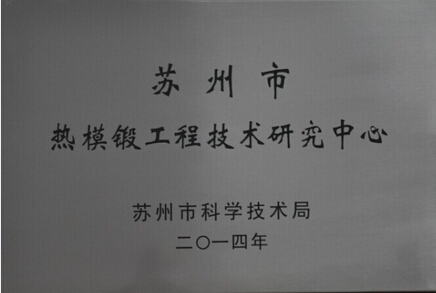 苏州市
热模锻工程技术研究中心
苏州市科学技术局
二〇一四年